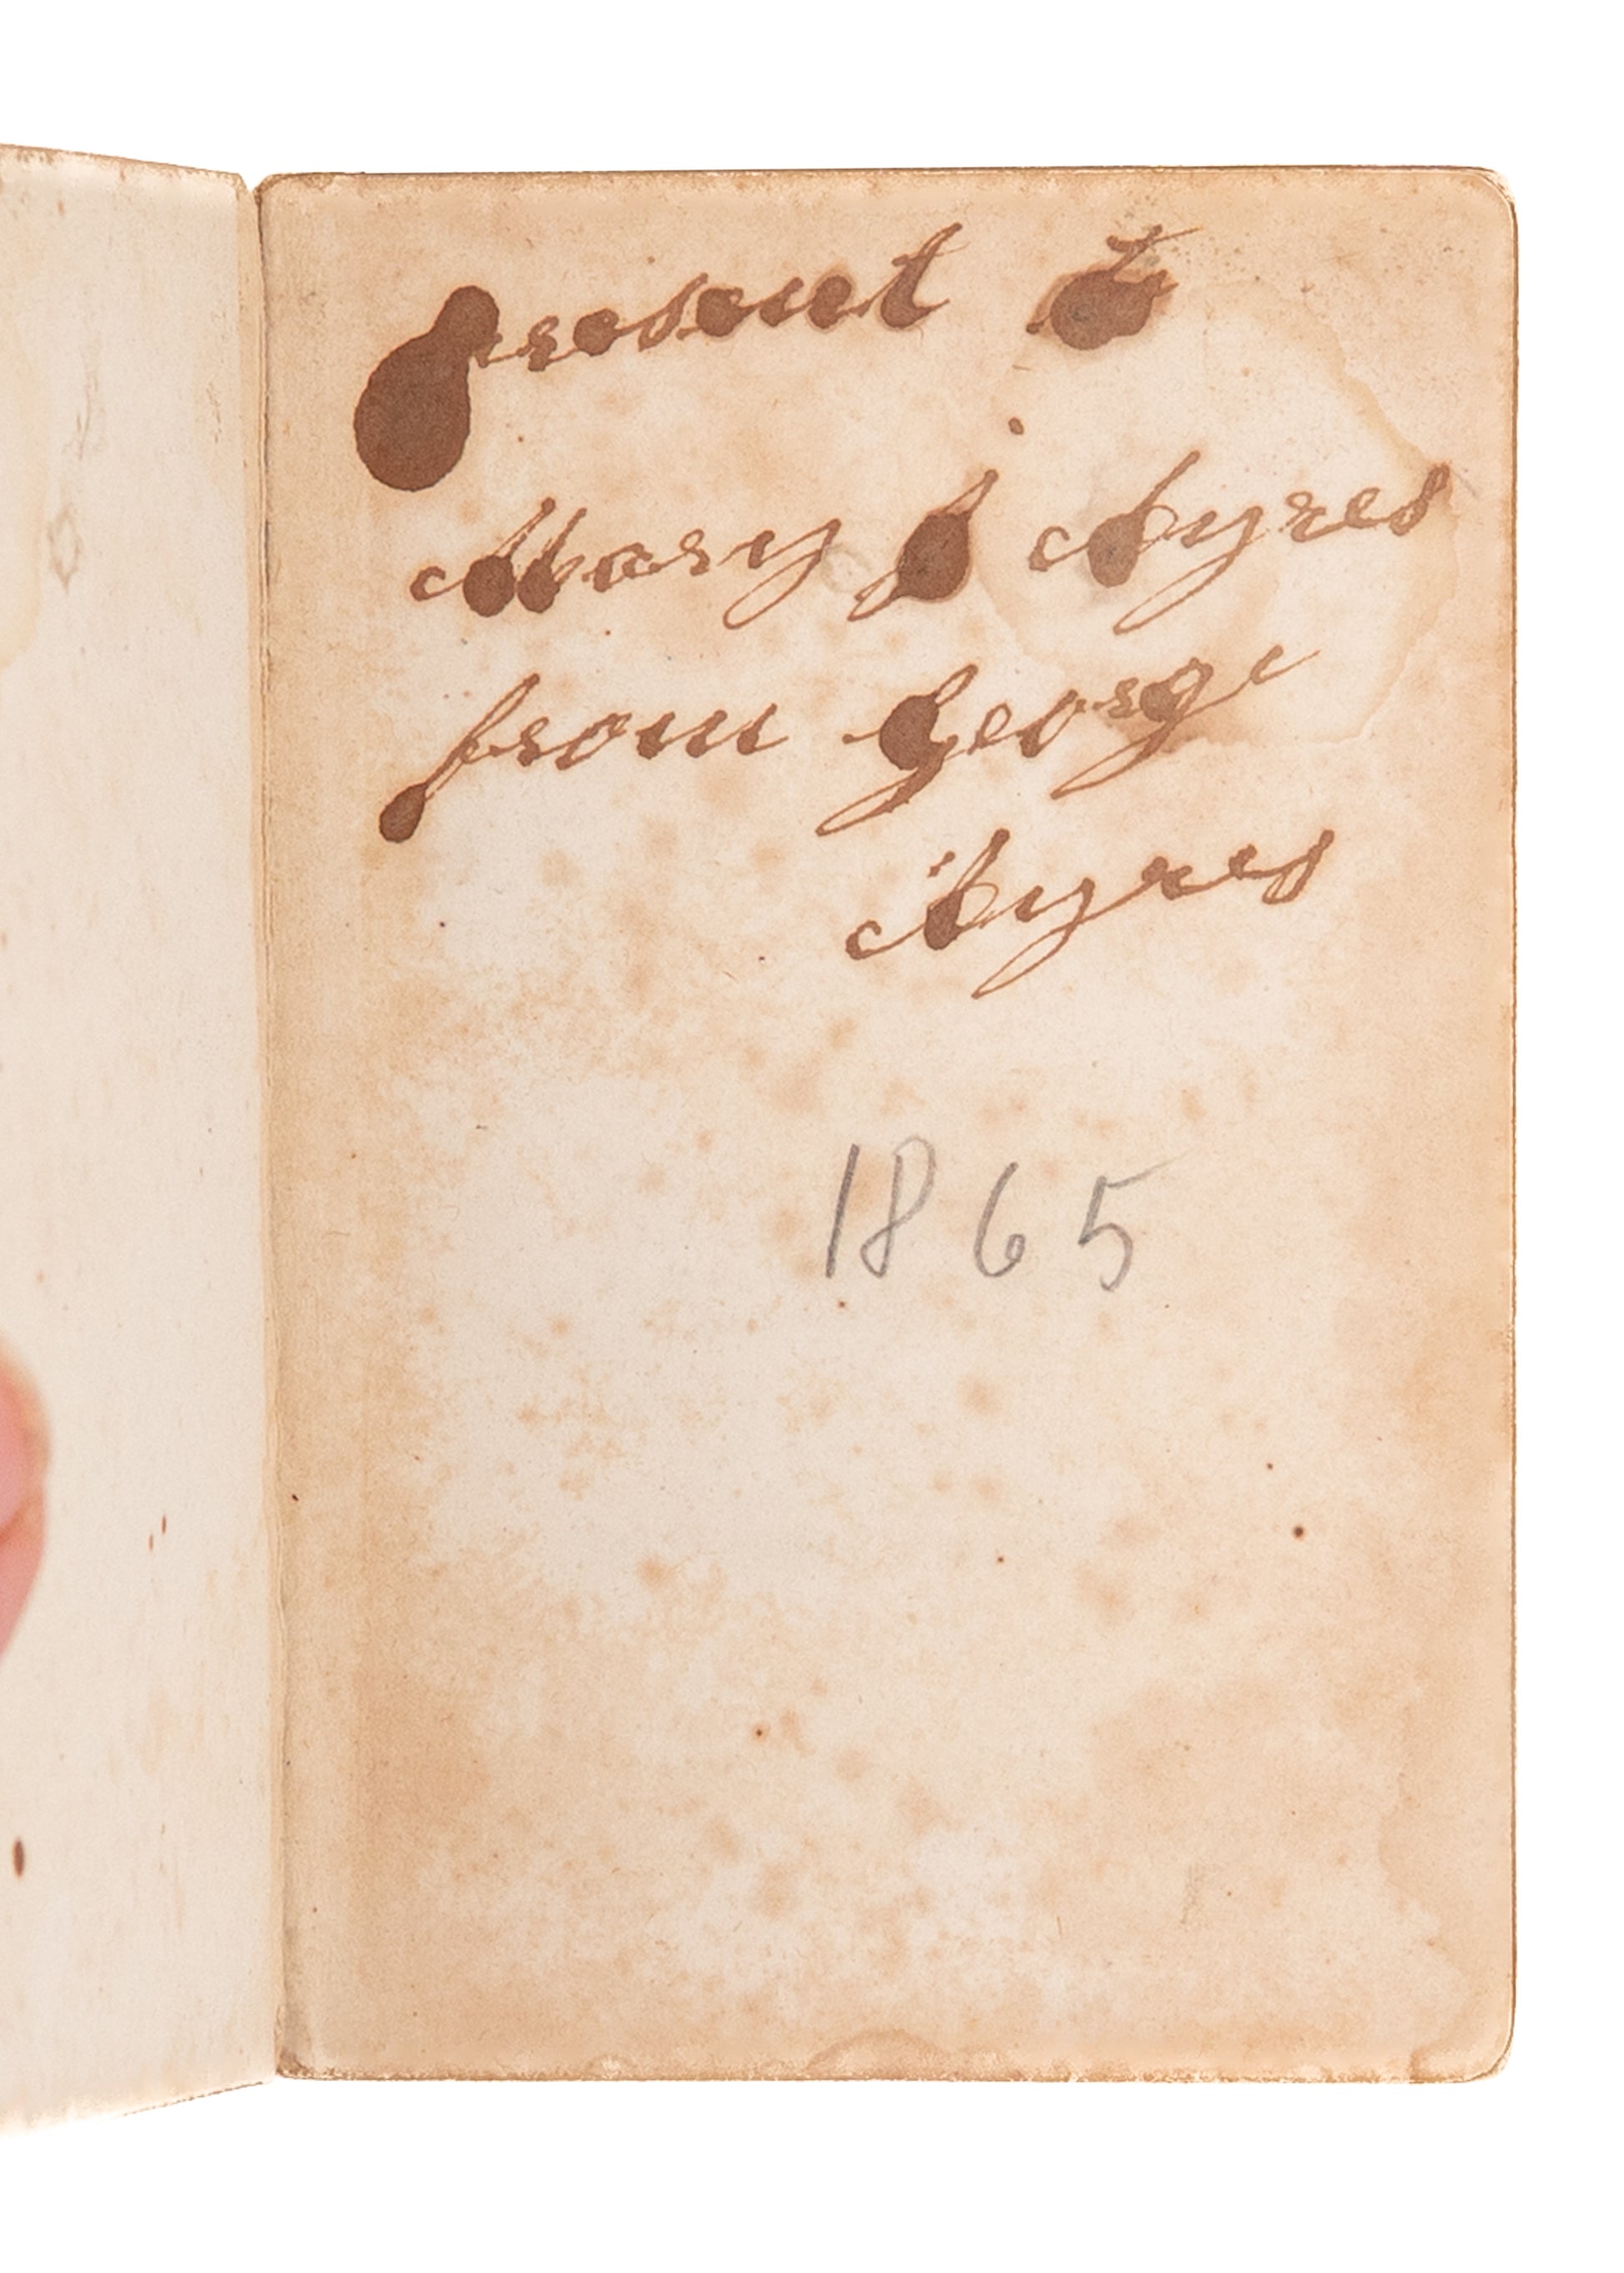 present to
Mary J Ayres
from George
Ayres
1865